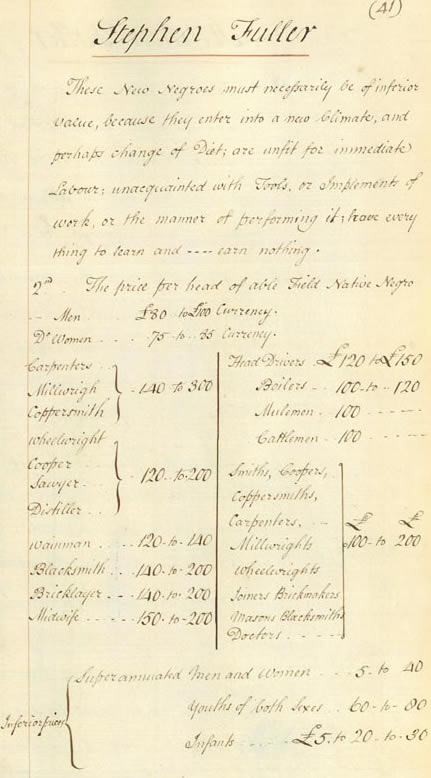 (41)
Stephen Fuller
These New Negroes must necessarily be of inferior
value, because they enter into a new Climate, and
perhaps change of Diet; are unfit for immediate
Labour; unacquainted with Tools, or Implements of
work, or the manner of performing it; have every
thing to learn and ---- earn nothing.
2nd. The price per head of able Field Native Negro
-- Men . . . £80 to £100 Currency.
Do Women - - - 75 - to - 85 Currency.
Carpenters . .
Millwrigh
Coppersmith
- 140 to 300
Wheelwright
Cooper . .
Sawyer . . .
Distiller . .
- 120 - to - 200
Wainman . . . 120 - to - 140
Blacksmith . . - 140 - to - 200
Bricklayer - - - 140 - to - 200
Midwife - - - - 150 - to - 200
Head Drivers £120 to £150
Boilers - . 100 - to - 120
Mulemen . 100 - - - - -
Cattlemen - 100 - - - - -
Smiths, Coopers,
Coppersmiths,
Carpenters, . -
Millwrights
Wheelwrights
Joiners Brickmakers
Masons Blacksmiths
Doctors . - - - -
£ £
100 - to 200
Inferior prices
Superannuated Men and Women - - - 5 - to 40
Youths of both Sexes . . 60 - to - 80
Infants - - - £5. to 20 - to - 30